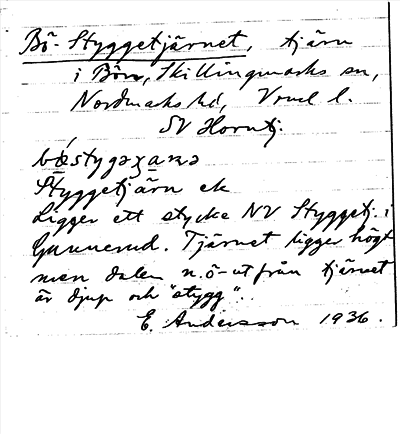 Bö-Styggetjärnet, tjärn
i Bön, Skillingmarks sn,
Nordmarks hd, Vrml l.
SV Horntj.
Styggetjärn ek
Ligger ett stycke NV Styggetj. i
Gunnerud. Tjärnet ligger högt
men dalen n.ö-ut från tjärnet
är djup och "stygg".
E. Andersson 1936.